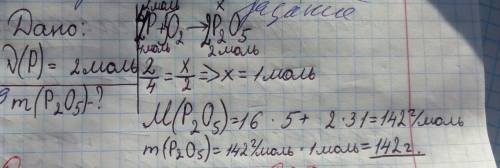 задание
Дано:
ν(P) = 2 моль
m(P₂O₅)-?
2моль x
4P + 5O₂ → 2P₂O₅
4моль 2моль
2/4 = x/2 => x = 1 моль
M(P₂O₅) = 16 · 5 + 2 · 31 = 142 г/моль
m(P₂O₅) = 142 г/моль · 1 моль = 142 г.